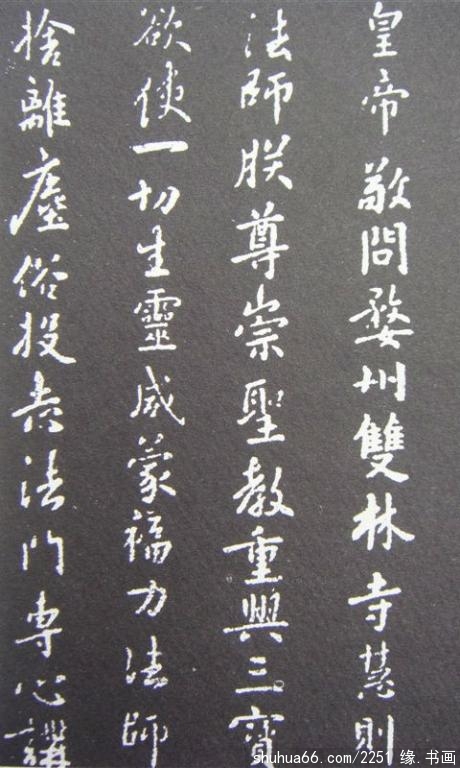 皇帝敬問婺州雙林寺慧則
法師朕尊崇聖教重興三寶
欲使一切生靈咸蒙福力法師
捨離塵俗投志法門專心講
shuhua66.com/2251 缘.书画